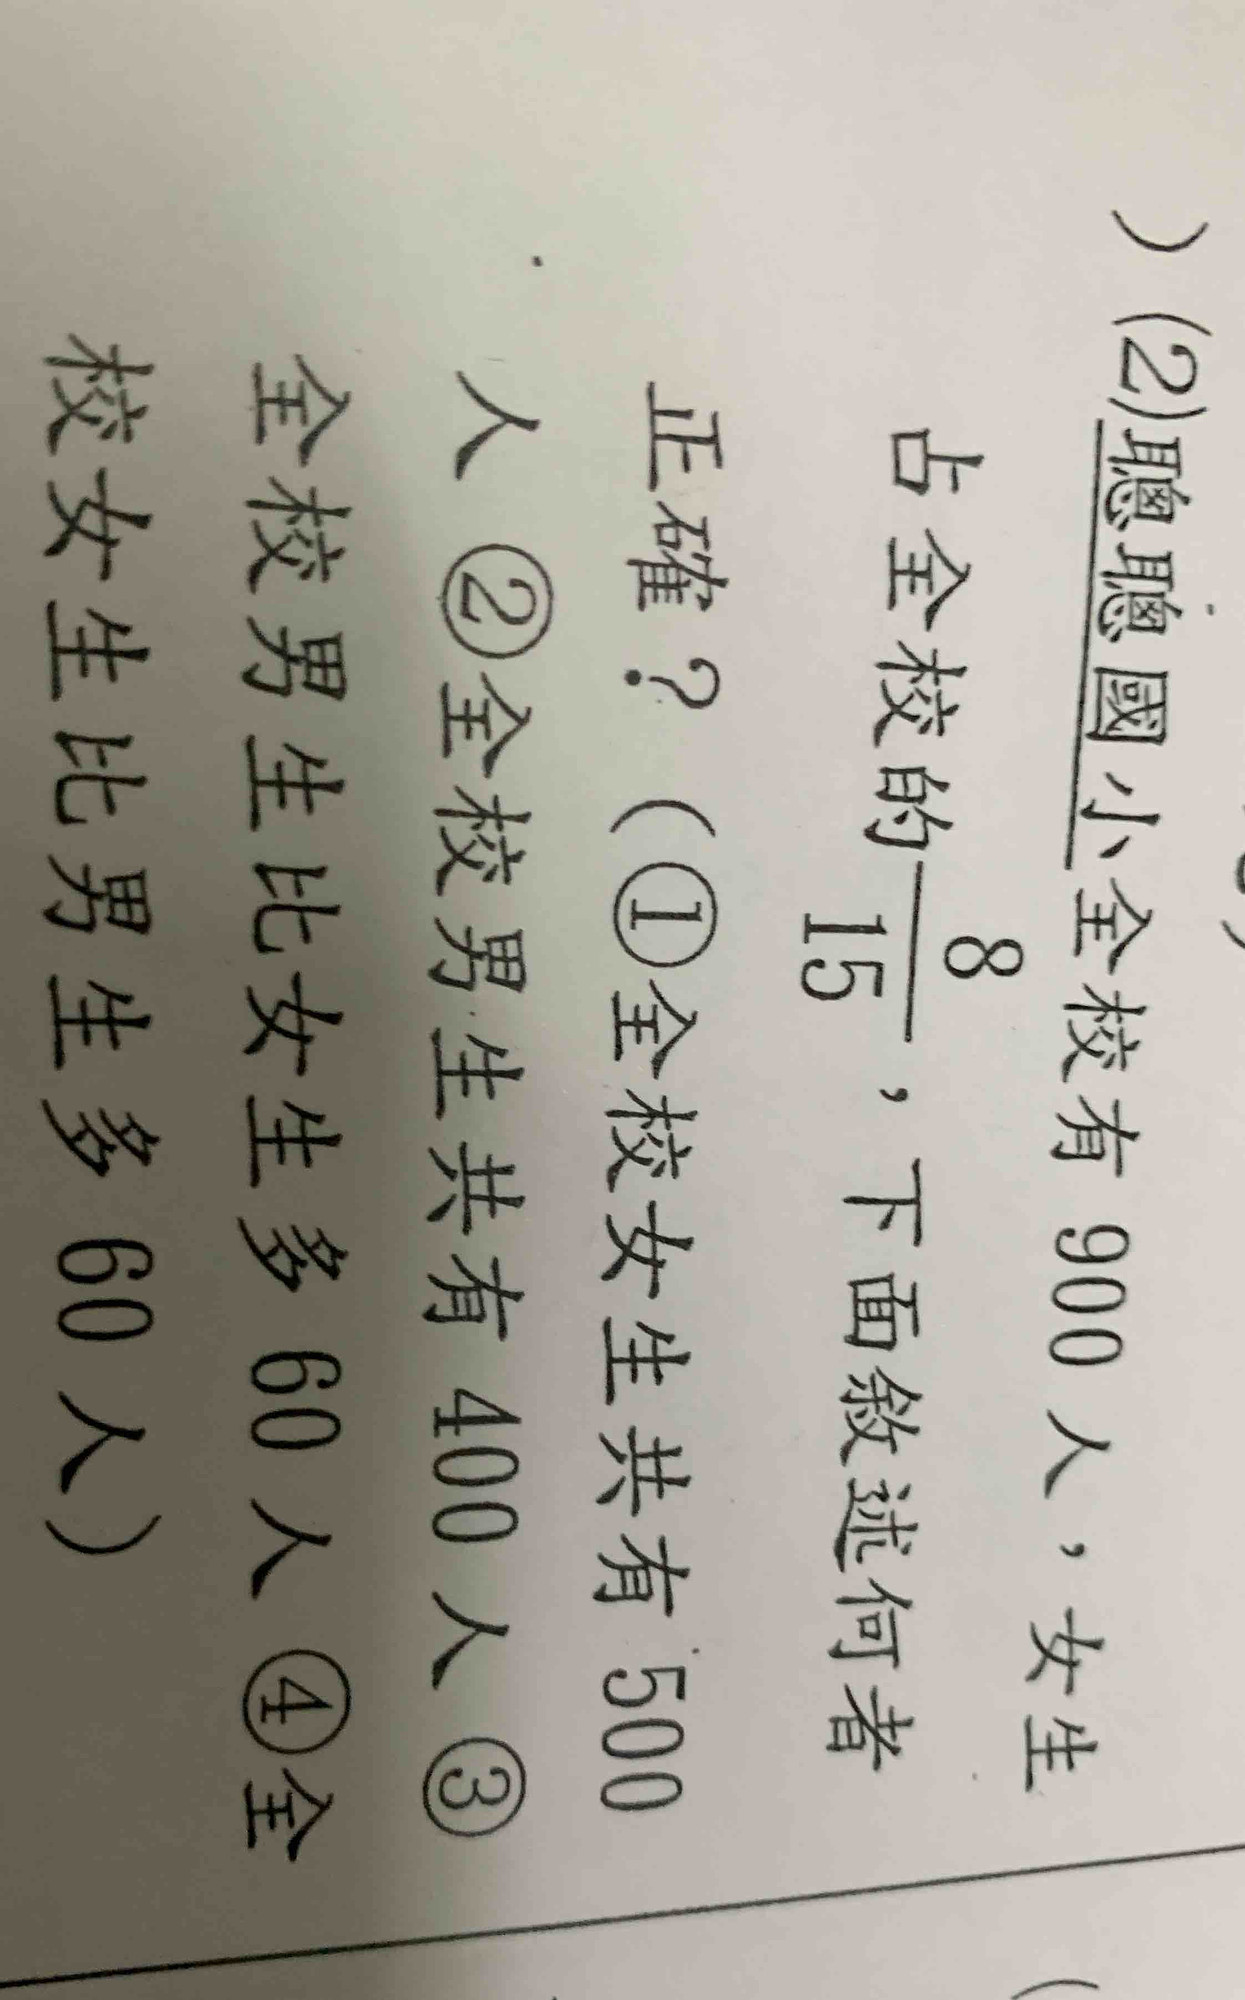 ) (2)聰聰國小全校有 900 人，女生
占全校的8/15，下面敘述何者
正確？(①全校女生共有 500
人 ②全校男生共有 400 人 ③
全校男生比女生多 60 人 ④全
校女生比男生多 60 人)
(